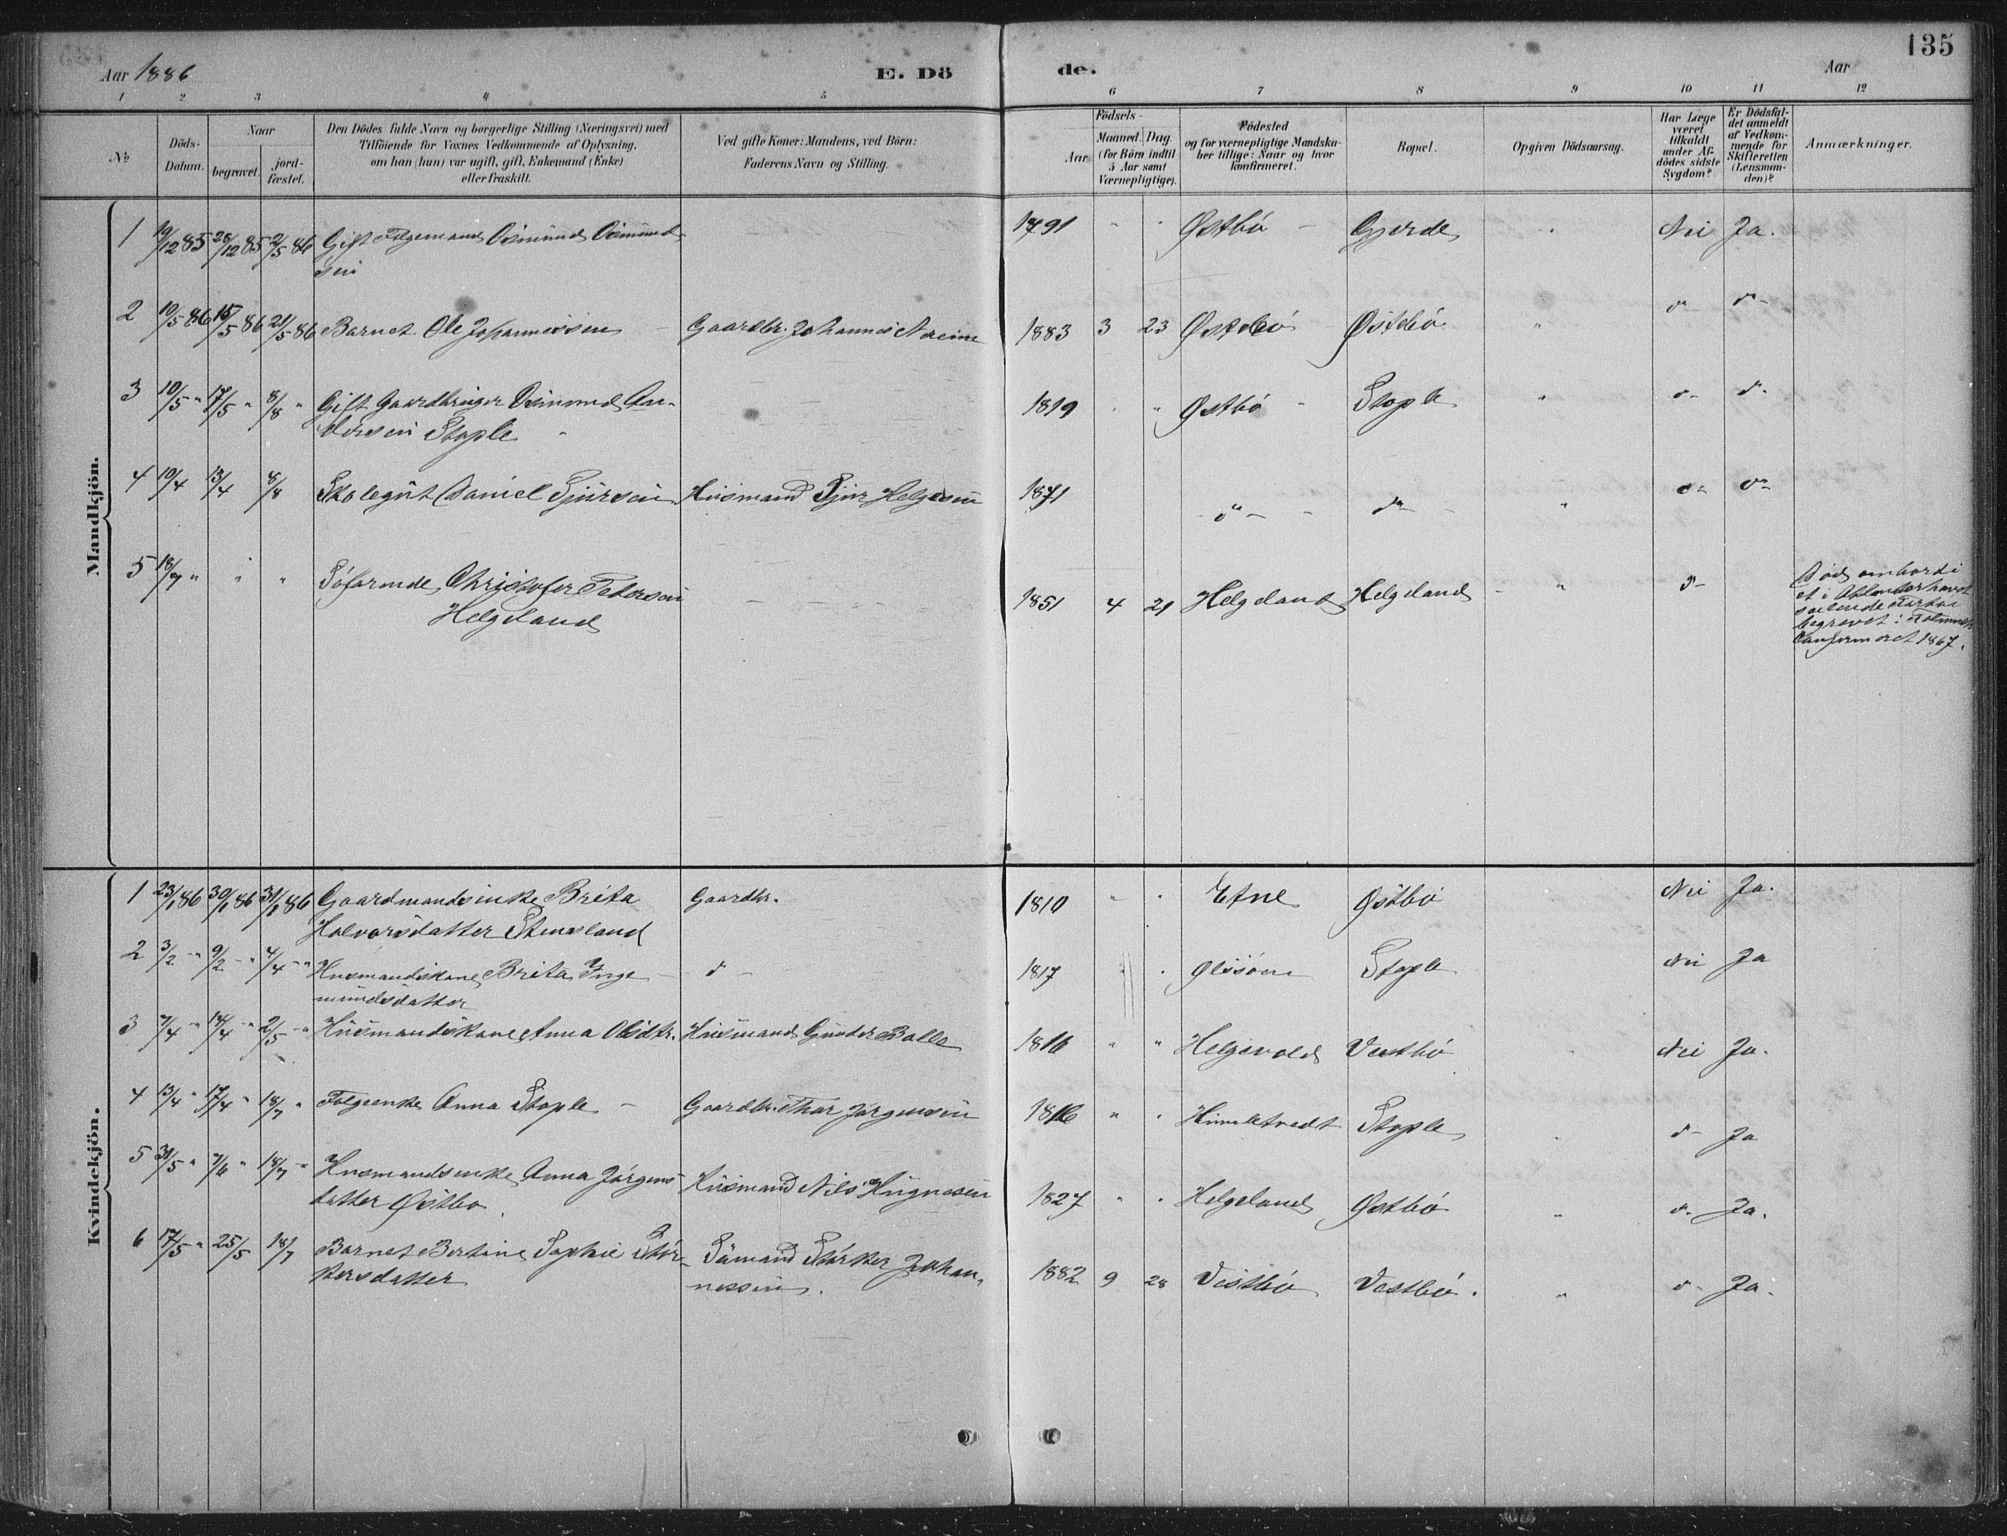 Aar 1886
E. Dö
de.
Aar
135
1 2 3 4 5 6 7 8 9 10 11 12
No
Döds-
Datum.
Naar
begravet.
jord-
fæstet.
Den Dödes fulde Navn og borgerlige Stilling (Næringsvei) med
Tilföiende for Voxnes Vedkommende af Oplysning,
om han (hun) var ugift, gift, Enkemand (Enke)
eller fraskilt.
Ved gifte Koner: Mandens, ved Börn:
Faderens Navn og Stilling.
Födsels-
Aar
Maaned. Dag.
(for Börn indtil
5 Aar samt
Værnepligtige).
Födested
og for værnepligtige Mandska-
ber tillige: Naar og hvor
konfirmeret.
Bopæl.
Opgiven Dödsaarsag.
Har Læge
været
tilkaldt
under Af-
dödes sidste
Sygdom?
Er Dödsfal-
det anmeldt
af Vedkom-
mende for
Skifteretten
(Lensman-
den)?
Anmærkninger.
Mandkjön.
1 19/12 85 28/12 85 2/5 86 Gift Folgemand Osmund Osmund- 1791 " " Østbö Gjerde " Nei Ja.
sen
2 10/5 86 15/5 86 21/5 86 Barnet Ole Johannessen Gaardbr. Johannes Nreim 1883 3 23 Østebö Østebö " do do
3 10/5 " 17/5 " 8/8 " Gift Gaardbruger Osmund An- 1819 " " Østbö Stople " do do
dersen Stople
4 10/4 13/4 8/8 Skolegut Daniel Sjursen Husmand Sjur Helgesen 1871 do do " do do
5 18/7 " " " Söfarende Christofer Pedersen 1851 4 21 Helgeland Helgeland " do
Helgeland
Död ombord i
et i Atlanterhavet
seilende Fartöi
begravet i
Confirmeret 1867.
Kvindekjön.
1 23/1 86 30/1 86 31/1 86 Gaardmandsenke Brita Gaardbr. 1810 " " Etne Østbö Nei Ja.
Halvorsdatter Stenesland
2 3/2 " 9/2 " 4/4 " Husmandskone Brita Inge- do 1817 " Ølsöen Stople Nei Ja
mundsdatter
3 7/4 " 14/4 " 2/5 " Husmandskone Anna Olsdtr. Husmand Gunder Bolle 1816 " " Helgevold Vestbö Nei Ja.
4 13/4 " 17/4 " 18/7 " Folgeenke Anna Stople Gaardbr. Thor Jörgensen 1816 " " Himletvedt Stople do Ja
5 31/5 " 7/6 " 18/7 " Husmandsenke Anna Jörgens- Husmand Nils Hugnesen 1827 " " Helgeland Østbö " do Ja.
datter Østbö
6 17/5 " 25/5 18/7 Barnet Bertine Sophie Stör- Sömand Störker Johan- 1882 9 28 Vestbö Vestbö. " do Ja.
kersdatter nessen.